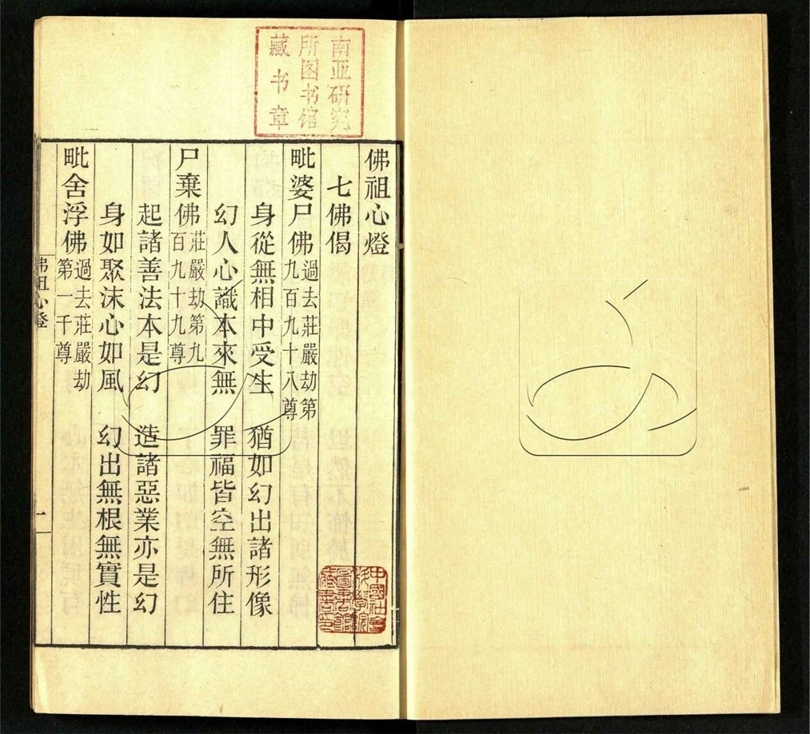 佛祖心燈
七佛偈
毗婆尸佛過去莊嚴劫第九百九十八尊
身從無相中受生 猶如幻出諸形像
幻人心識本來無 罪福皆空無所住
尸棄佛莊嚴劫第九百九十九尊
起諸善法本是幻 造諸惡業亦是幻
身如聚沫心如風 幻出無根無實性
毗舍浮佛過去莊嚴劫第一千尊
佛祖心燈
一
南亚研究
所图书馆
藏书章